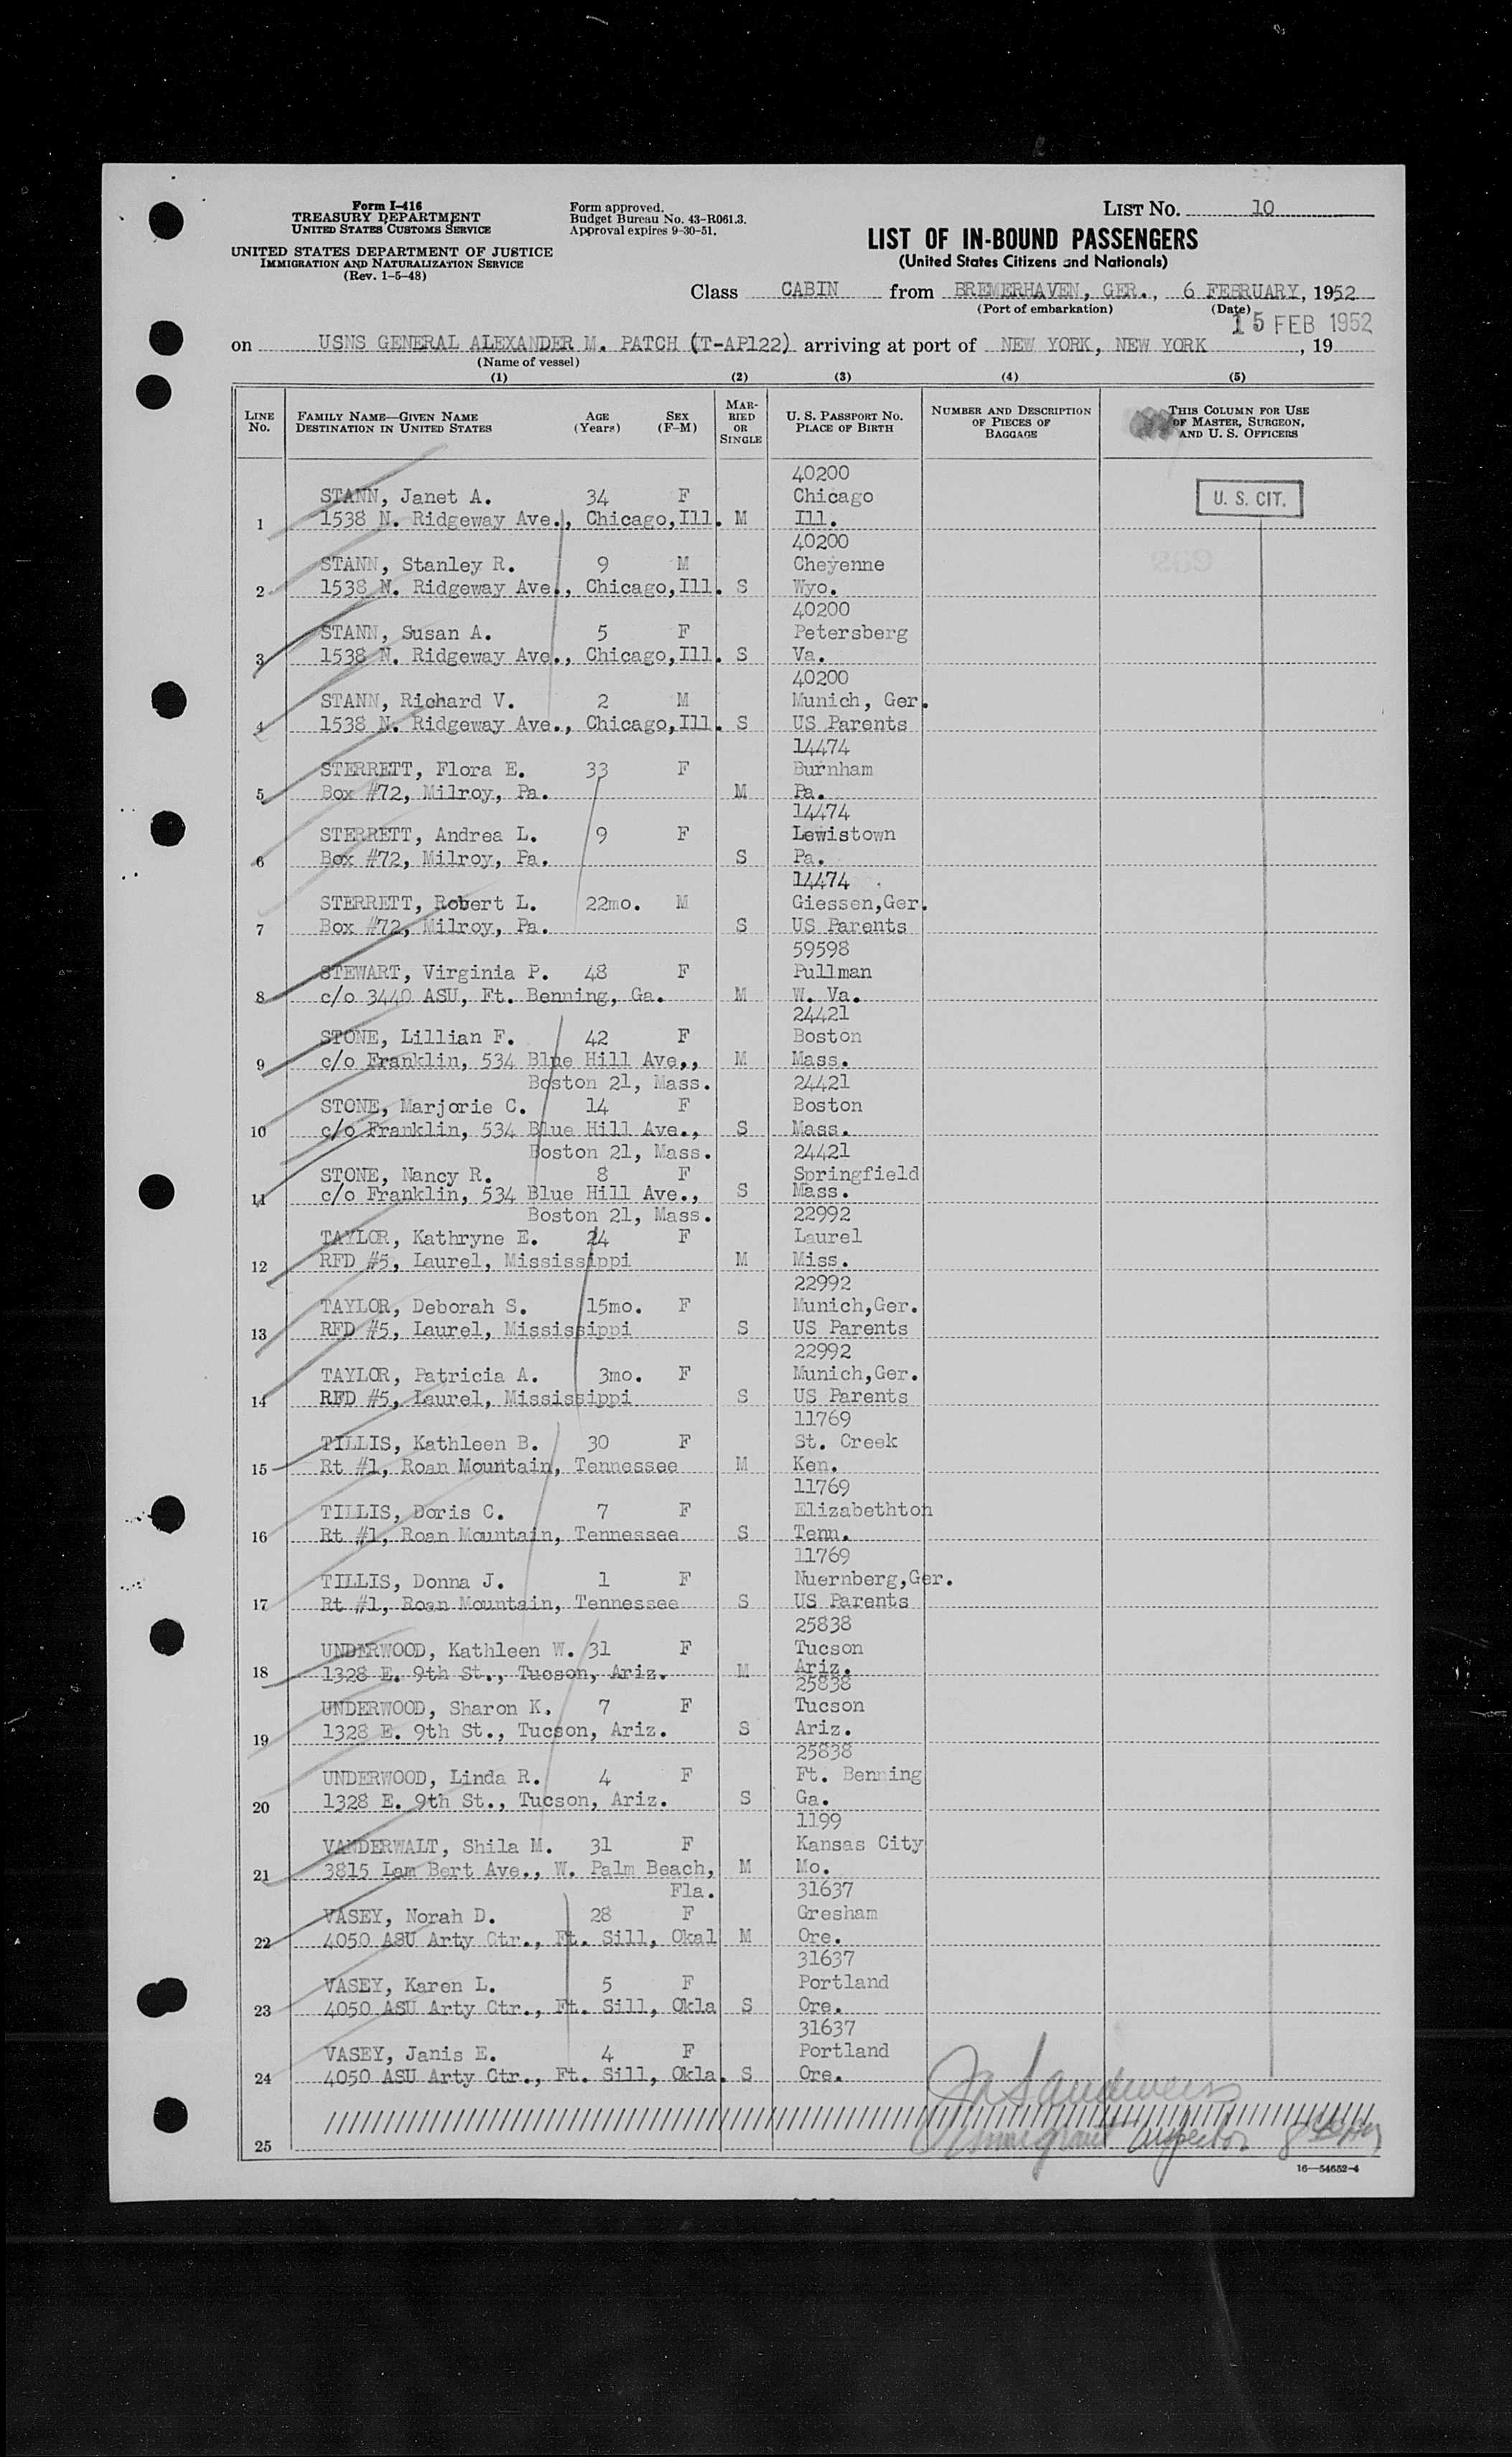 Form I-416
TREASURY DEPARTMENT
UNITED STATES CUSTOMS SERVICE
UNITED STATES DEPARTMENT OF JUSTICE
IMMIGRATION AND NATURALIZATION SERVICE
(Rev. 1-5-48)
Form approved.
Budget Bureau No. 43-R061.3.
Approval expires 9-30-51.
LIST NO. 10
LIST OF IN-BOUND PASSENGERS
(United States Citizens and Nationals)
Class CABIN from BREMERHAVEN, GER., 6 FEBRUARY, 1952
(Port of embarkation) (Date)
15 FEB 1952
on USNS GENERAL ALEXANDER M. PATCH (T-AP122) arriving at port of NEW YORK, NEW YORK, 19
(Name of vessel)
(1) (2) (3) (4) (5)
LINE No. FAMILY NAME—GIVEN NAME DESTINATION IN UNITED STATES AGE (Years) SEX (F-M) MARRIED OR SINGLE U. S. PASSPORT NO. PLACE OF BIRTH NUMBER AND DESCRIPTION OF PIECES OF BAGGAGE THIS COLUMN FOR USE OF MASTER, SURGEON, AND U. S. OFFICERS
40200
STANN, Janet A. 34 F Chicago U. S. CIT.
1 1538 N. Ridgeway Ave., Chicago,Ill. M Ill.
40200
STANN, Stanley R. 9 M Cheyenne
2 1538 N. Ridgeway Ave., Chicago,Ill. S Wyo.
40200
STANN, Susan A. 5 F Petersberg
3 1538 N. Ridgeway Ave., Chicago,Ill. S Va.
40200
STANN, Richard V. 2 M Munich, Ger.
4 1538 N. Ridgeway Ave., Chicago,Ill. S US Parents
14474
STERRETT, Flora E. 33 F Burnham
5 Box #72, Milroy, Pa. M Pa.
14474
STERRETT, Andrea L. 9 F Lewistown
6 Box #72, Milroy, Pa. S Pa.
14474
STERRETT, Robert L. 22mo. M Giessen,Ger.
7 Box #72, Milroy, Pa. S US Parents
59598
STEWART, Virginia P. 48 F Pullman
8 c/o 3440 ASU, Ft. Benning, Ga. M W. Va.
24421
STONE, Lillian F. 42 F Boston
9 c/o Franklin, 534 Blue Hill Ave., M Mass.
Boston 21, Mass. 24421
STONE, Marjorie C. 14 F Boston
10 c/o Franklin, 534 Blue Hill Ave., S Mass.
Boston 21, Mass. 24421
STONE, Nancy R. 8 F Springfield
11 c/o Franklin, 534 Blue Hill Ave., S Mass.
Boston 21, Mass. 22992
TAYLOR, Kathryne E. 24 F Laurel
12 RFD #5, Laurel, Mississippi M Miss.
22992
TAYLOR, Deborah S. 15mo. F Munich,Ger.
13 RFD #5, Laurel, Mississippi S US Parents
22992
TAYLOR, Patricia A. 3mo. F Munich,Ger.
14 RFD #5, Laurel, Mississippi S US Parents
11769
TILLIS, Kathleen B. 30 F St. Creek
15 Rt #1, Roan Mountain, Tennessee M Ken.
11769
TILLIS, Doris C. 7 F Elizabethton
16 Rt #1, Roan Mountain, Tennessee S Tenn.
11769
TILLIS, Donna J. 1 F Nuernberg,Ger.
17 Rt #1, Roan Mountain, Tennessee S US Parents
25838
UNDERWOOD, Kathleen W. 31 F Tucson
18 1328 E. 9th St., Tucson, Ariz. M Ariz.
25838
UNDERWOOD, Sharon K. 7 F Tucson
19 1328 E. 9th St., Tucson, Ariz. S Ariz.
25838
UNDERWOOD, Linda R. 4 F Ft. Benning
20 1328 E. 9th St., Tucson, Ariz. S Ga.
1199
VANDERWALT, Shila M. 31 F Kansas City
21 3815 Lam Bert Ave., W. Palm Beach, M Mo.
Fla. 31637
VASEY, Norah D. 28 F Gresham
22 4050 ASU Arty Ctr., Ft. Sill, Okal M Ore.
31637
VASEY, Karen L. 5 F Portland
23 4050 ASU Arty Ctr., Ft. Sill, Okla S Ore.
31637
VASEY, Janis E. 4 F Portland
24 4050 ASU Arty Ctr., Ft. Sill, Okla. S Ore.
25 Immigrant Inspector
16—54652-4